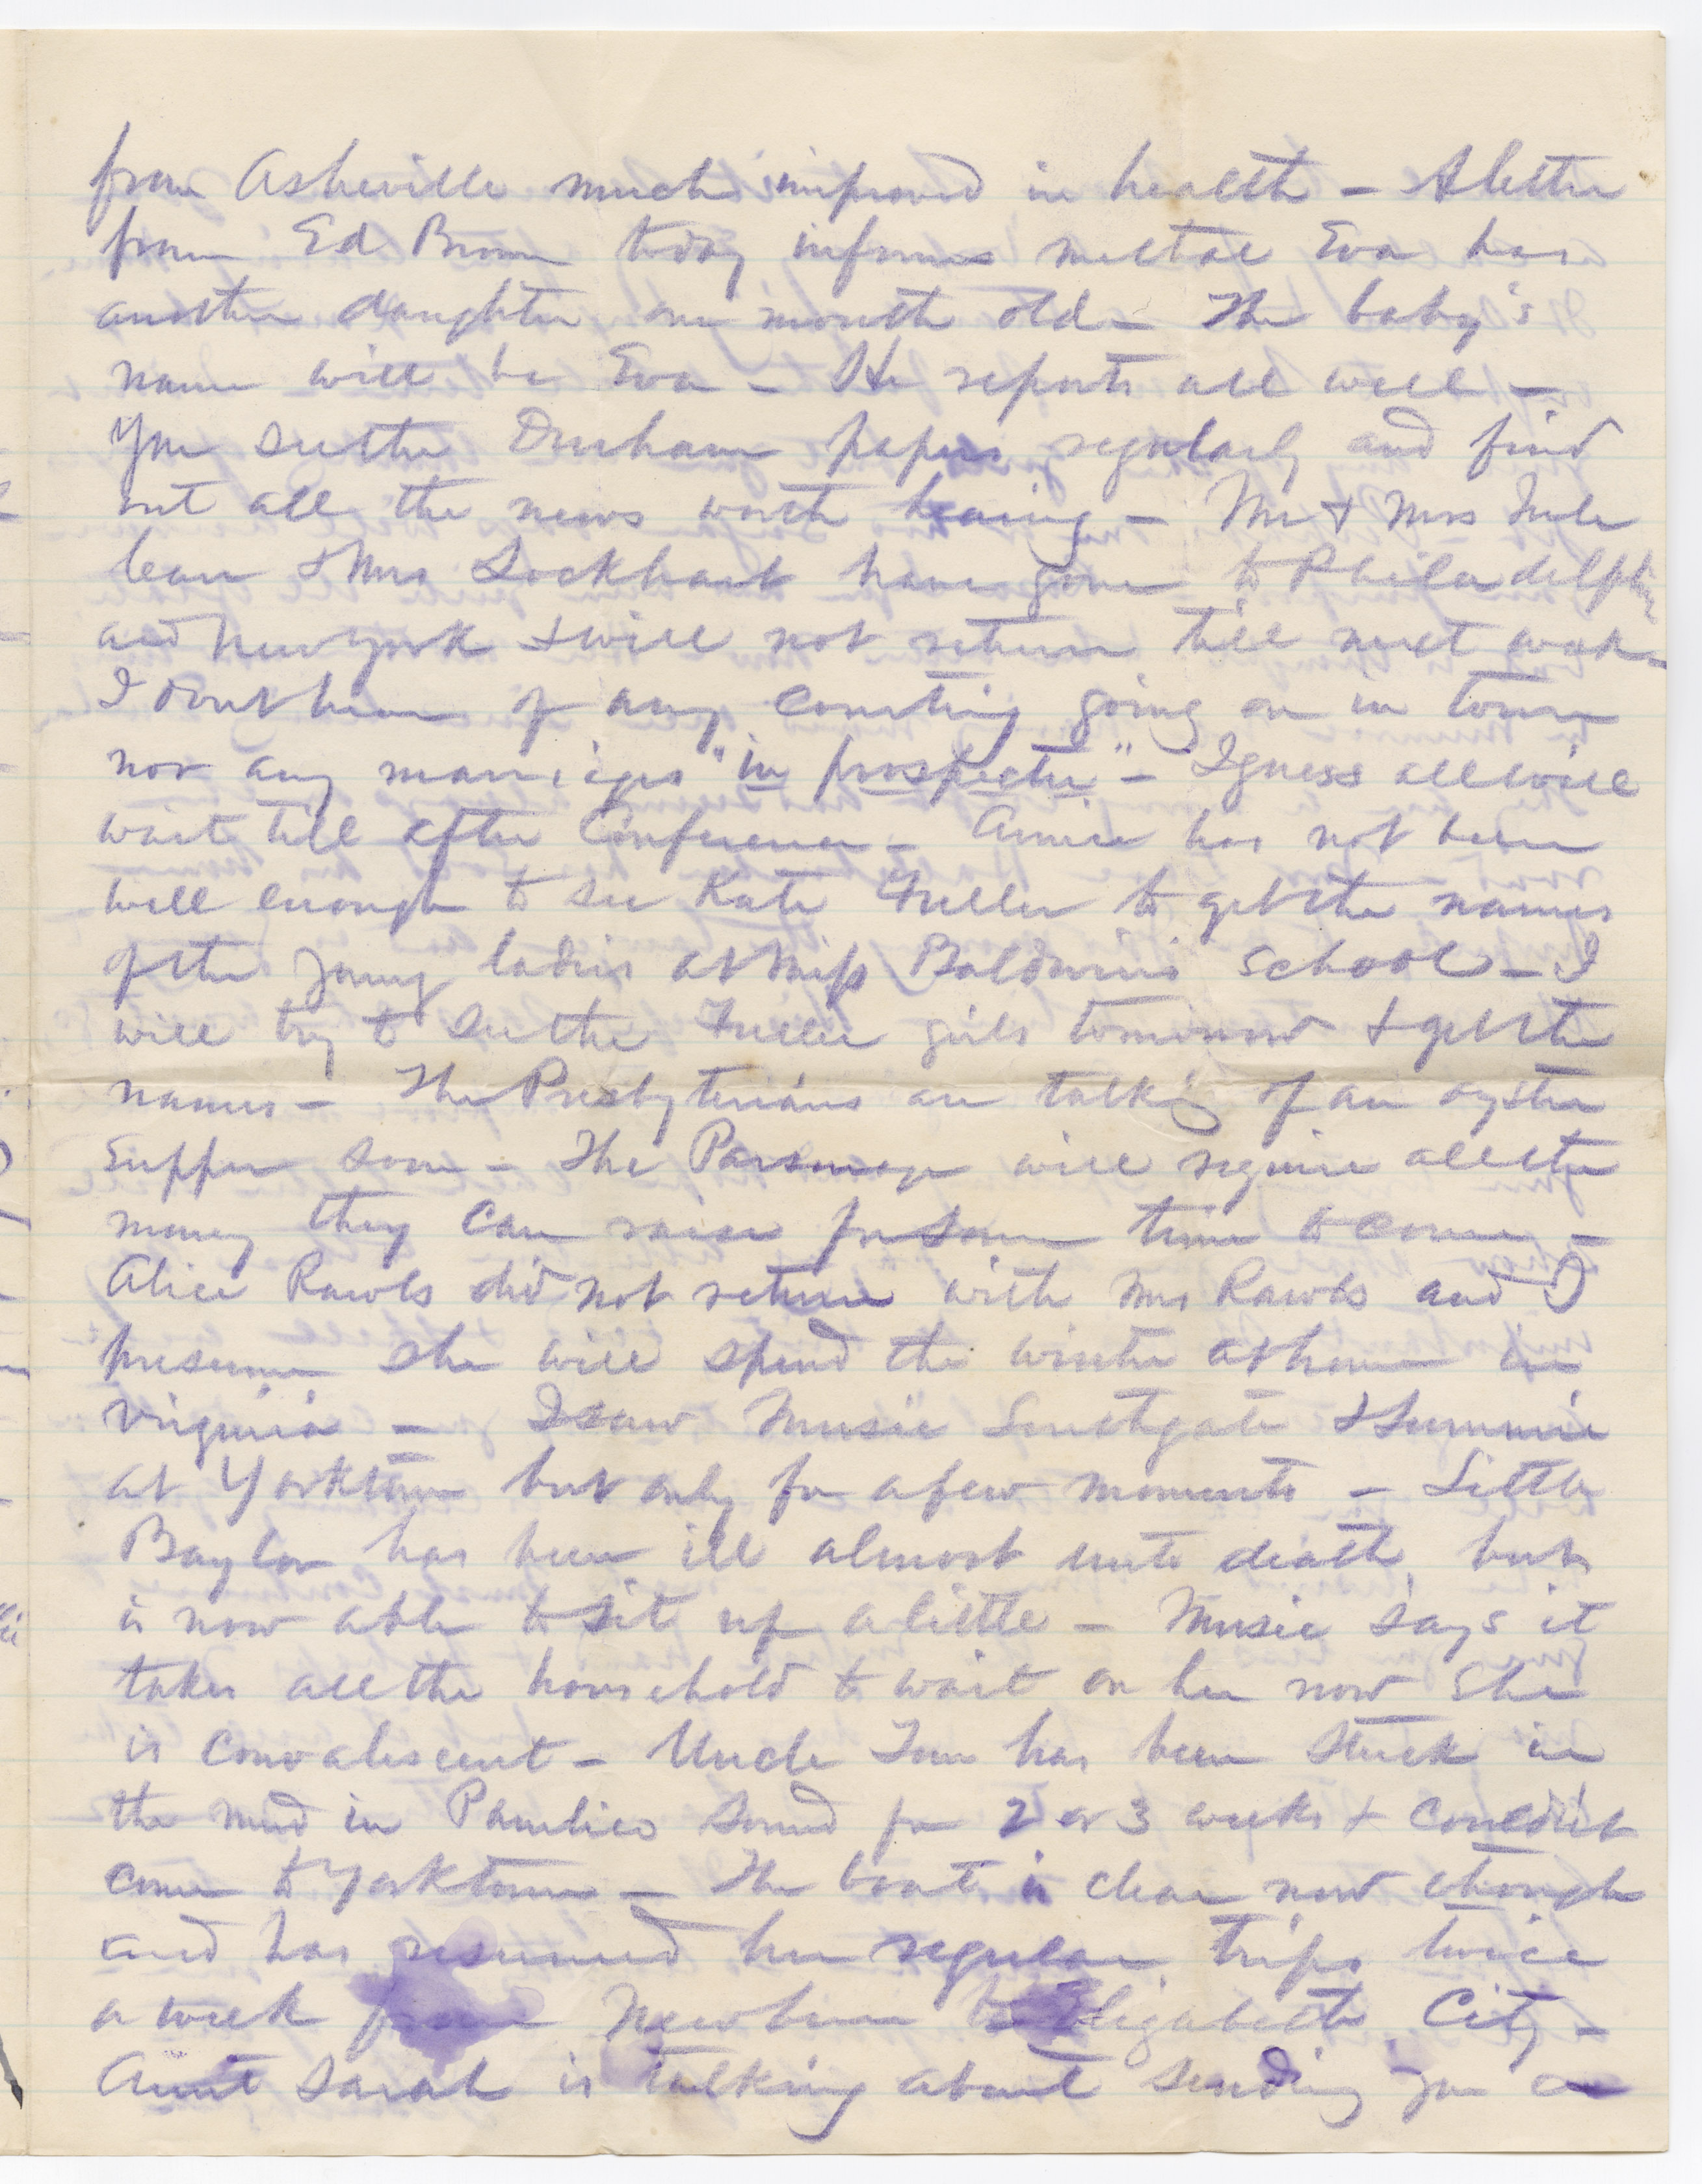 from Asheville much improved in health - A letter
from Ed Brown today informs me that Eva has
another daughter one month old - The baby's
name will be Eva - He reports all well -
You see the Durham papers regularly and find
out all the news worth hearing - Mr & Mrs
& Mrs Lockhart have gone to Philadelphia
and New York & will not return till next week -
I dont hear of any courting going on in town
nor any marriages "in prospectu" - I guess all will
wait till after Conference - Annie has not been
well enough to see Kate Fuller to get the names
of the young ladies at Miss Baldwin's School - I
will try to see the Fuller girls tomorrow & get the
names - The Presbyterians are talk'g of an oyster
supper soon - The Parsonage will require all the
money they can raise for some time to come -
Alice Rawls did not return with Mrs Rawls and I
presume she will spend the winter at home in
Virginia - I saw Musie Southgate &
at Yorktown but only for a few moments - Little
Baylor has been ill almost unto death, but
is now able to sit up a little - Musie says it
takes all the household to wait on her now she
is convalescent - Uncle Tom has been stuck in
the mud in Pamlico Sound for 2 or 3 weeks & couldn't
come to Yorktown - The boat is clear now though
and has resumed her regular trips twice
a week from Newbern to Elizabeth City -
Aunt Sarah is talking about sending you a